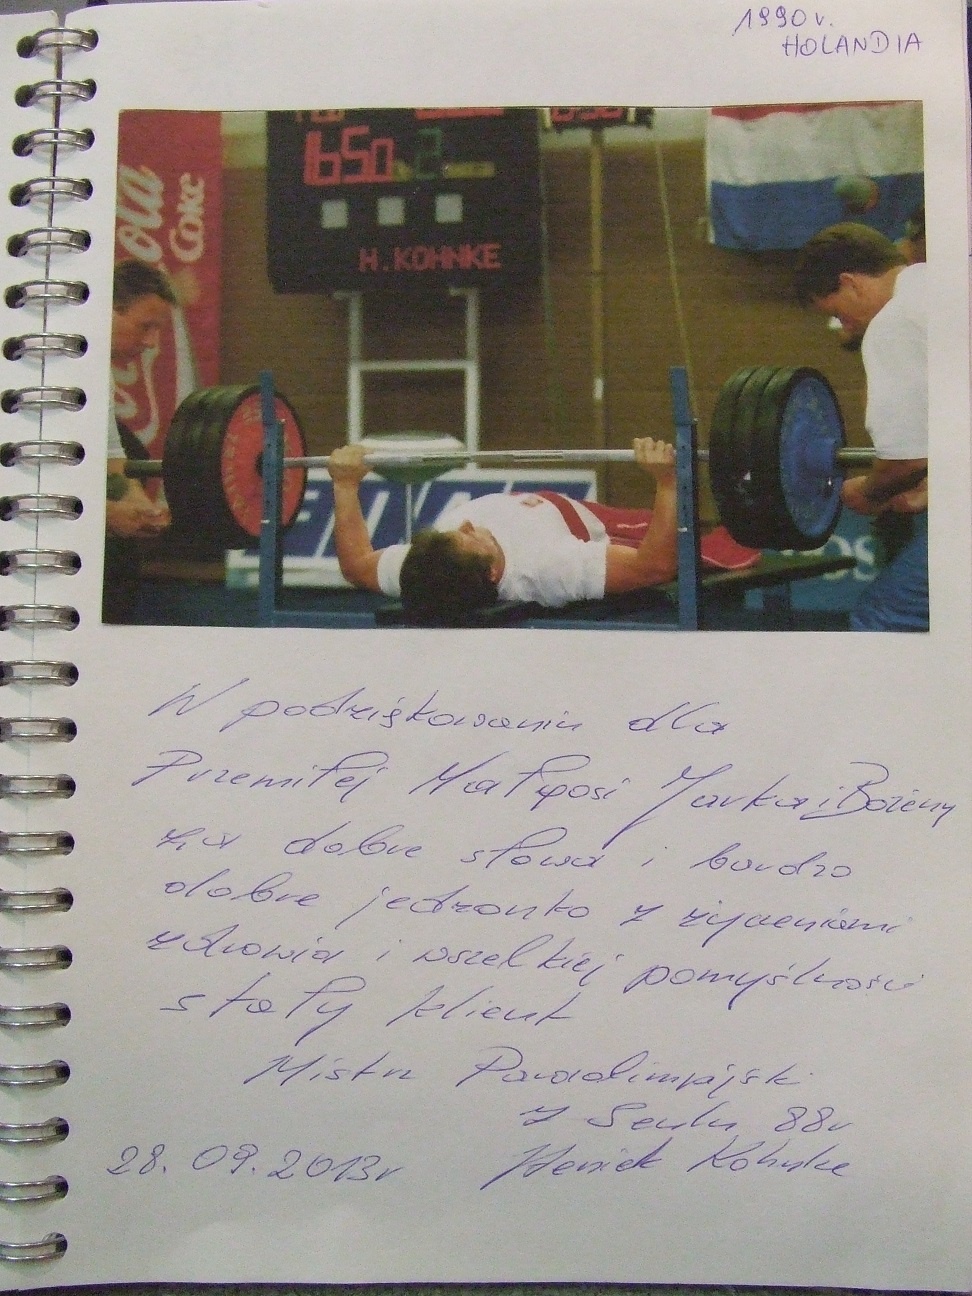 1990 r.
HOLANDIA
Cola
Coke
165.0 2
H. KOHNKE
FIAT
W podziękowaniu dla
Przemiłej Małgosi Jarka i Bożeny
za dobre słowa i bardzo
dobre jedzonko z życzeniami
zdrowia i wszelkiej pomyślności
stały klient
Mistrz Paraolimpijski
z Seulu 88r
28. 09. 2013r Heniek Kohnke